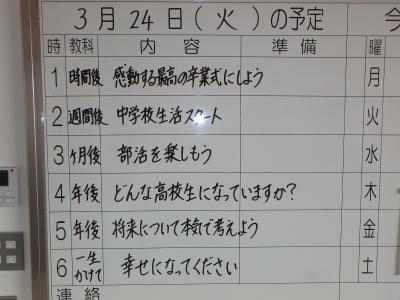 3月24日(火)の予定 今
時 教科 内容 準備 曜
1 時間後 感動する最高の卒業式にしよう 月
2 週間後 中学校生活スタート 火
3 ヶ月後 部活を楽しもう 水
4 年後 どんな高校生になっていますか? 木
5 年後 将来について本気で考えよう 金
6 一生かけて 幸せになってください 土
連絡